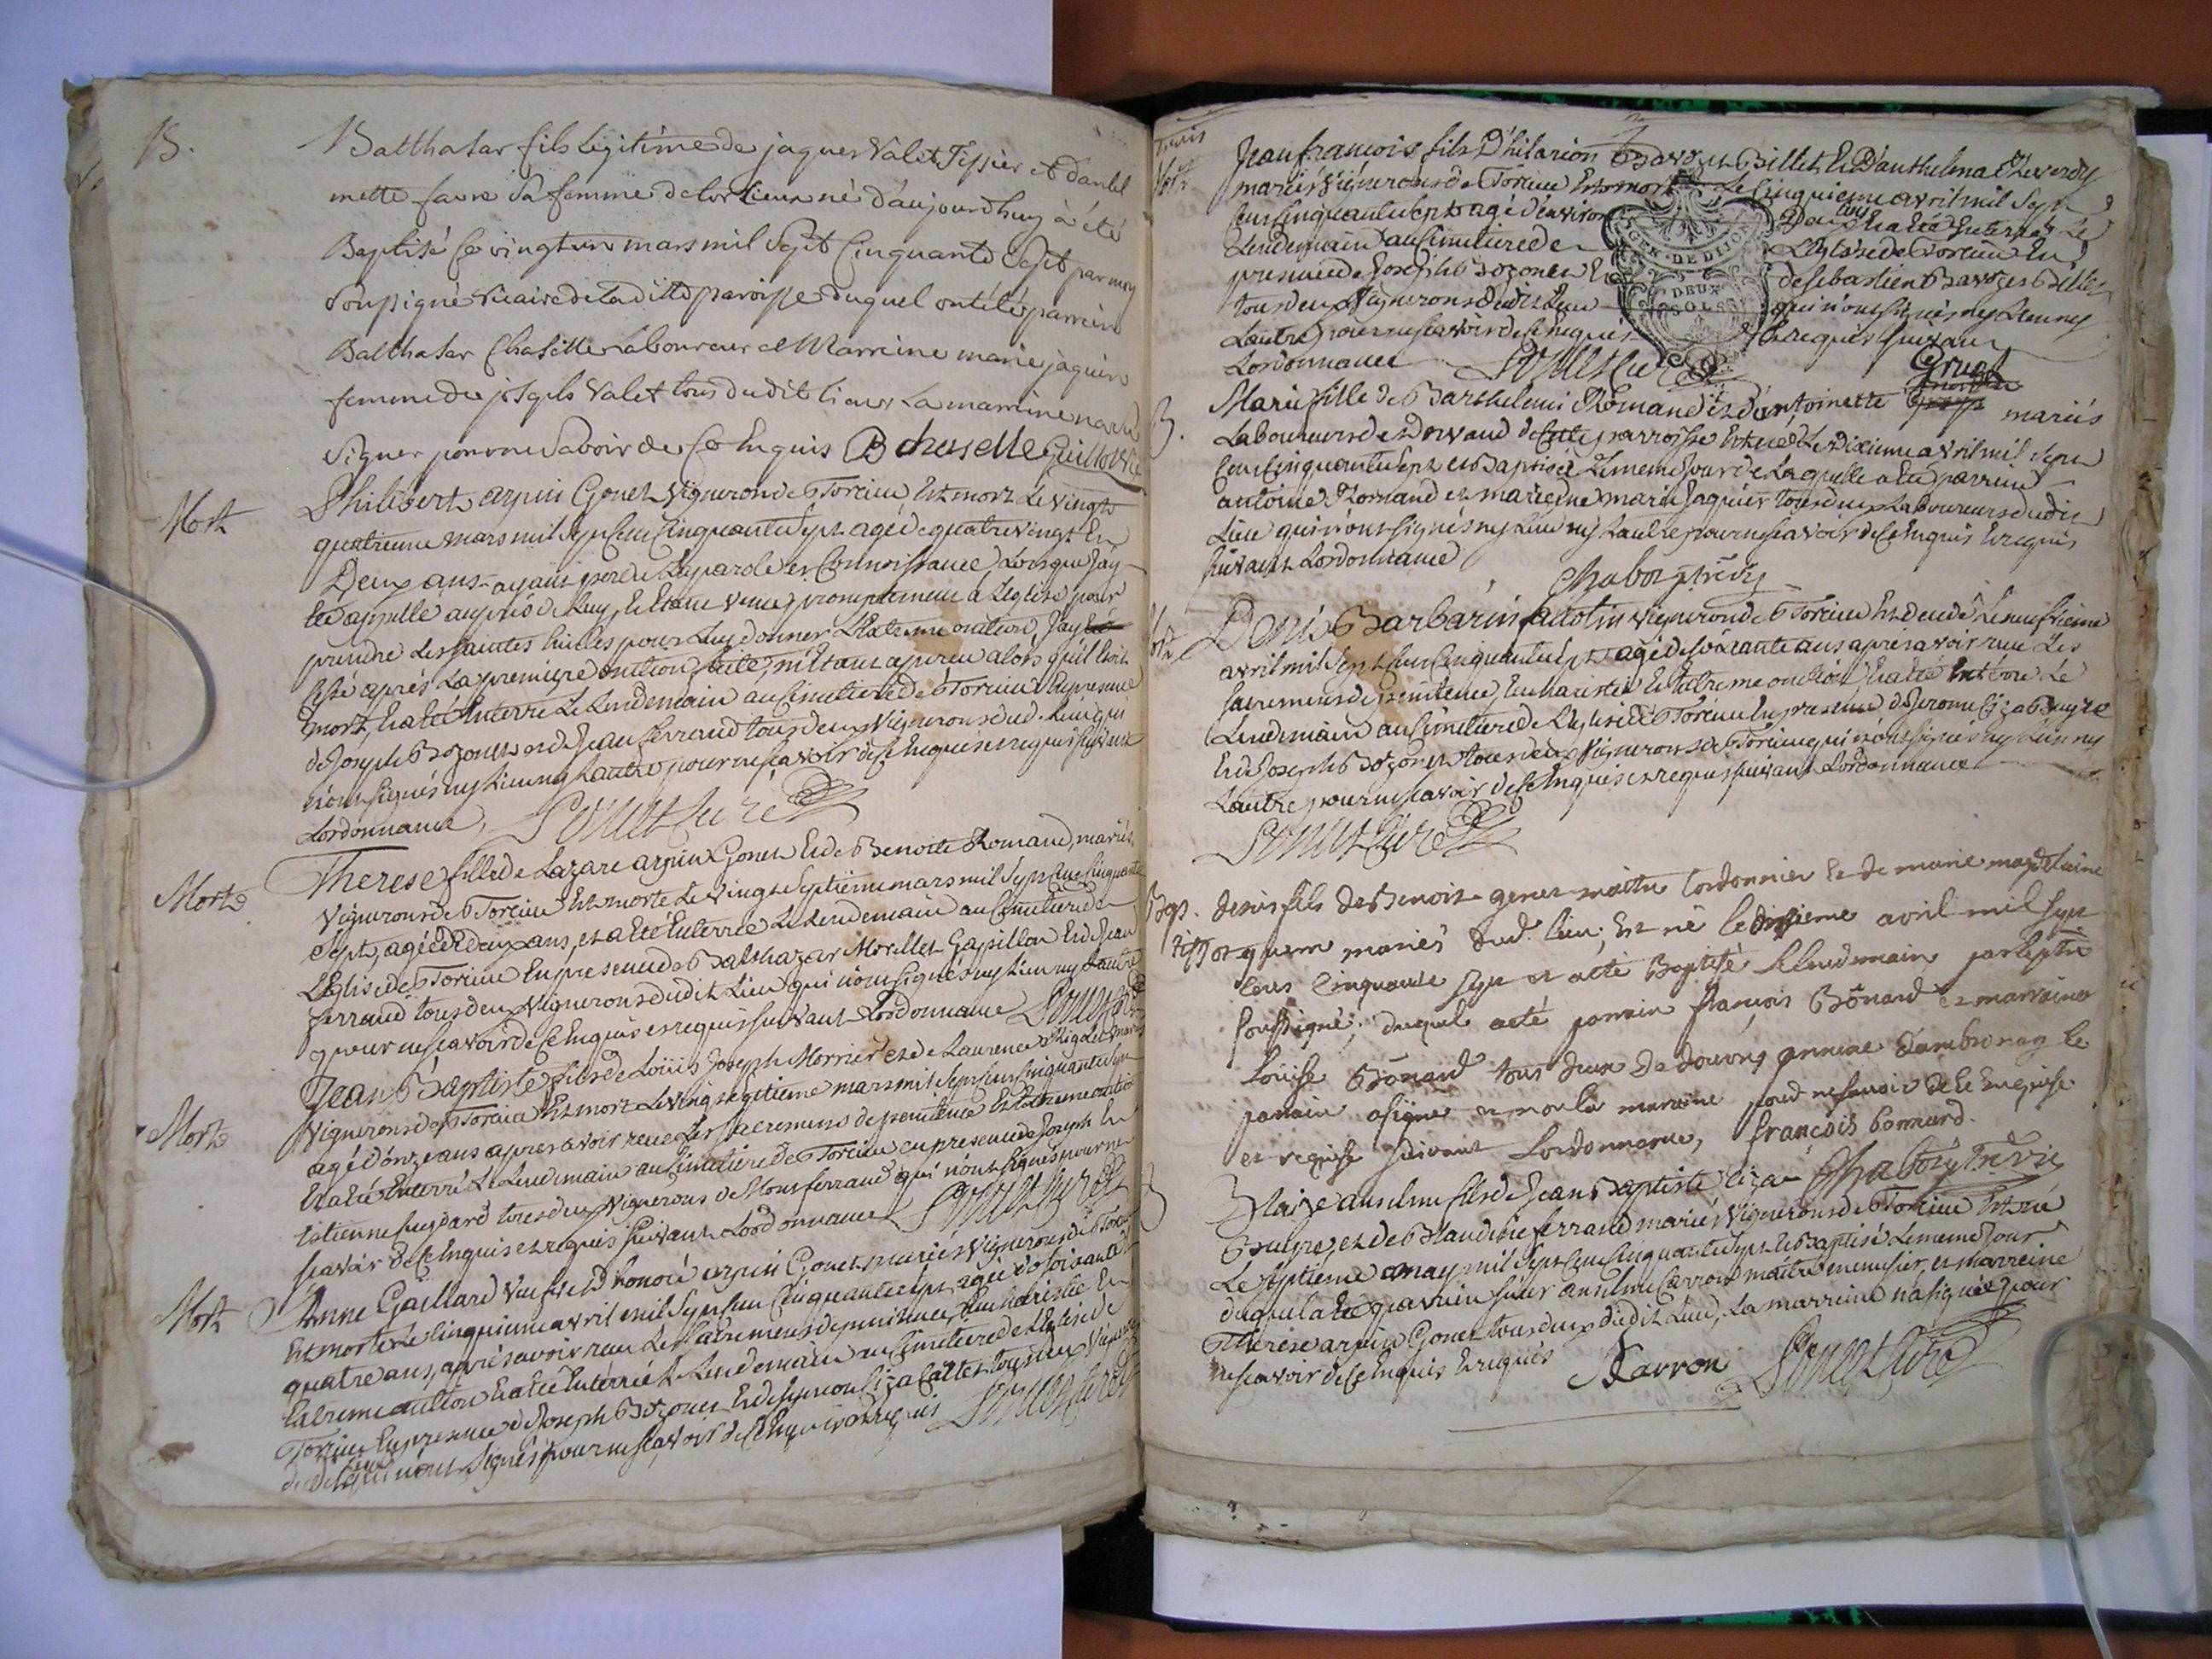 B.
Balthasar fils légitime de jaques Valet Tissier et d'antel
mette favre sa femme de lor Lieux né d'aujourdhuy à été
Baptisé Ce vingt un mars mil Sept Cinquante Sept par moy
Soussigné vicaire de laditte paroisse duquel ont été parrein
Balthasar Chaselle Laboureur et Marreine marie jaquin
femme de joseph Valet tous dudit lieux La marreine na sû
Signer pour ne Savoir de Ce Enquis B chaselle Guillot vic
Mort
Philibert arpin Gonet Vigneron de Torcieu Est mort Le vingt
quatrieme mars mil sept Cent Cinquante Sept agé de quatre vingt En
Deux ans ayant perdu La parole et Connoissance, Lorsque jay
été appellé auprés de Luy, Et Etant venu promptement a Léglise pour
prendre Les saintes huilles pour Luy donner L'Extreme onction, jay
cessé aprés La premiere onction faite, m'étant aperçu alors qu'il Etoit
mort, Et a été Enterré Le Lendemain au Cimetiere de Torcieu En presence
de Joseph Bozonet et de Jean ferrand tous deux Vignerons dud. Lieu qui
n'ont signés ny L'un ny L'autre pour ne scavoir de Ce Enquis et requis suivant
Lordonnance, Sonet Curé
Morte
Therese fille de Lazare arpin Gonet Et de Benoite Romand, mariés
Vignerons de Torcieu Est morte Le vingt Septieme mars mil Sept Cent Cinquante
Sept, agée de Deux ans, et a été Enterrée Le Lendemain au Cimetiere de
L'Eglise de Torcieu En presence de Balthazar Morillet Gapillon Et de Jean
ferrand tous deux Vignerons dudit Lieu qui n'ont signés ny L'un ny L'autre
pour ne scavoir de Ce Enquis et requis suivant Lordonnance Sonet Curé
Morts
Jean Baptiste fils de Loüis Joseph Morrier et de Laurence Rigolet mariés
Vignerons de Torcieu Est mort Le vingt Septieme mars mil Sept Cent Cinquante Sept
agé d'onze ans apres avoir receu Les sacremens de penitence Et Extreme onction
Et a été Enterré Le Lendemain au Cimetiere de Torcieu en presence de Joseph Et
Estienne Cuzzard tous deux Vignerons de Montferrand qui n'ont signés pour ne
scavoir de Ce Enquis et requis suivant Lordonnance Sonet Curé
Mort
Anne Gaillard Veufve d'honoré arpin Gonet mariés Vignerons de Torcieu
Est morte Le Cinquieme avril mil Sept Cent Cinquante Sept agée de soixante et
quatre ans, aprés avoir receu Les sacremens de penitence, Eucharistie En
Extreme onction Et a été Enterrée Le Lendemain au Cimetiere de L'Eglise de
Torcieu En presence de Joseph Bozonet Et de Symeon Liza Cattet tous deux Vignerons
dudit Lieu qui n'ont signés pour ne scavoir de Ce Enquis et requis Sonet Curé
Mort
Jean françois fils D'hilarion Bavozet Billet Et D'anthelma Theverdy
mariés Vignerons de Torcieu Est mort Le Cinquieme avril mil Sept
Cent Cinquante Sept agé d'environ Deux ans Et a été Enterré Le
Lendemain au Cimetiere de L'Eglise de Torcieu En
presence de Joseph Bozonet Et de Sebastien Bavozet Billet
tous deux Vignerons dudit Lieu qui n'ont signés ny L'un ny
L'autre pour ne scavoir de Ce Enquis Et requis suivant
Lordonnance Sonet Curé
GEN. DE DIJON
DEUX
SOLS
B.
Gruet
Marie fille de Barthelemi Romand et d'antoinette mariés
Laboureurs de Dorvand de Cette parroisse Est née Le Dixieme avril mil Sept
Cent Cinquante Sept et Baptisée Le meme jour de Laquelle a été parrein
antoine Romand et marreine marie Jaquier tous deux Laboureurs dudit
Lieu qui n'ont signés ny L'un ny L'autre pour ne scavoir de Ce Enquis Et requis
suivant Lordonnance
Chaboz ptre vic
Mort
Denis Barbarin vigneron de Torcieu Est decedé Le neufvieme
avril mil Sept Cent Cinquante Sept agé de soixante ans apres avoir receu Les
sacremens de penitence, Eucharistie Et Extreme onction Et a été Enterré Le
Lendemain au Cimetiere de L'Eglise de Torcieu En presence de Jerome Liza Bruyre
Et de Joseph Bozonet tous deux Vignerons de Torcieu qui n'ont signés ny L'un ny
L'autre pour ne scavoir de Ce Enquis et requis suivant Lordonnance
Sonet Curé
Bap.
denis fils de Benoit genet maitre Cordonnier Et de marie magdelaine
mariés dud. lieu, Est né le dixieme avril mil sept
Cens Cinquante sept et a été Baptisé le lendemain par le ptre
soussigné, duquel a été parrain françois Bônard Et marraine
loüise Bônard tous deux de douvre annexe d'ambronay le
parrain a signé et non la marraine pour ne savoir de Ce Enquise
et requise suivant Lordonnance, francois bonnard.
Chaboz ptre vic
B
Blaize anselme fils de Jean Baptiste Liza
Bruyre, et de Blaudine ferrand mariés Vignerons de Torcieu Est né
Le Septieme may mil Sept Cent Cinquante Sept Et Baptisé Le meme Jour
duquel a été parrein sieur anselme Carron maitre menuisier, et marreine
Therese arpin Gonet tous deux dudit Lieu, La marreine n'a signée pour
ne scavoir de Ce Enquis Et requis A Carron Sonet Curé